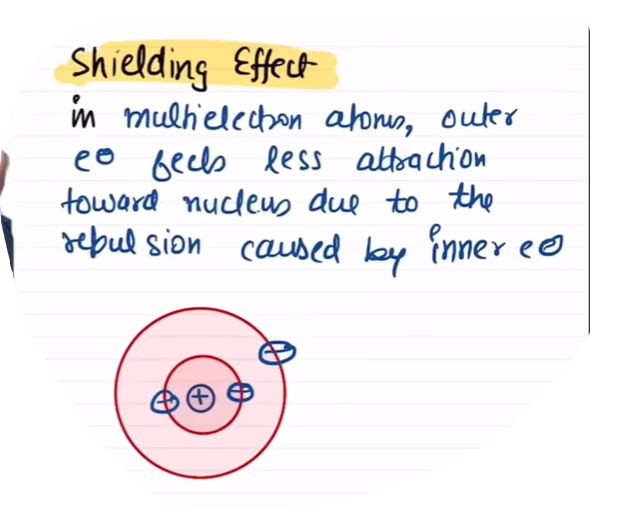 Shielding Effect
in multielectron atoms, outer
e⊖ feels less attraction
toward nucleus due to the
rebulsion caused by inner e⊖
⊖
⊖ + ⊖